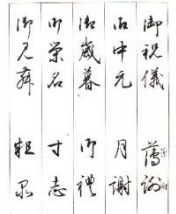 御祝儀　薄謝
御中元　月謝
御歳暮　御礼
御栄名　寸志
御見舞　粗品